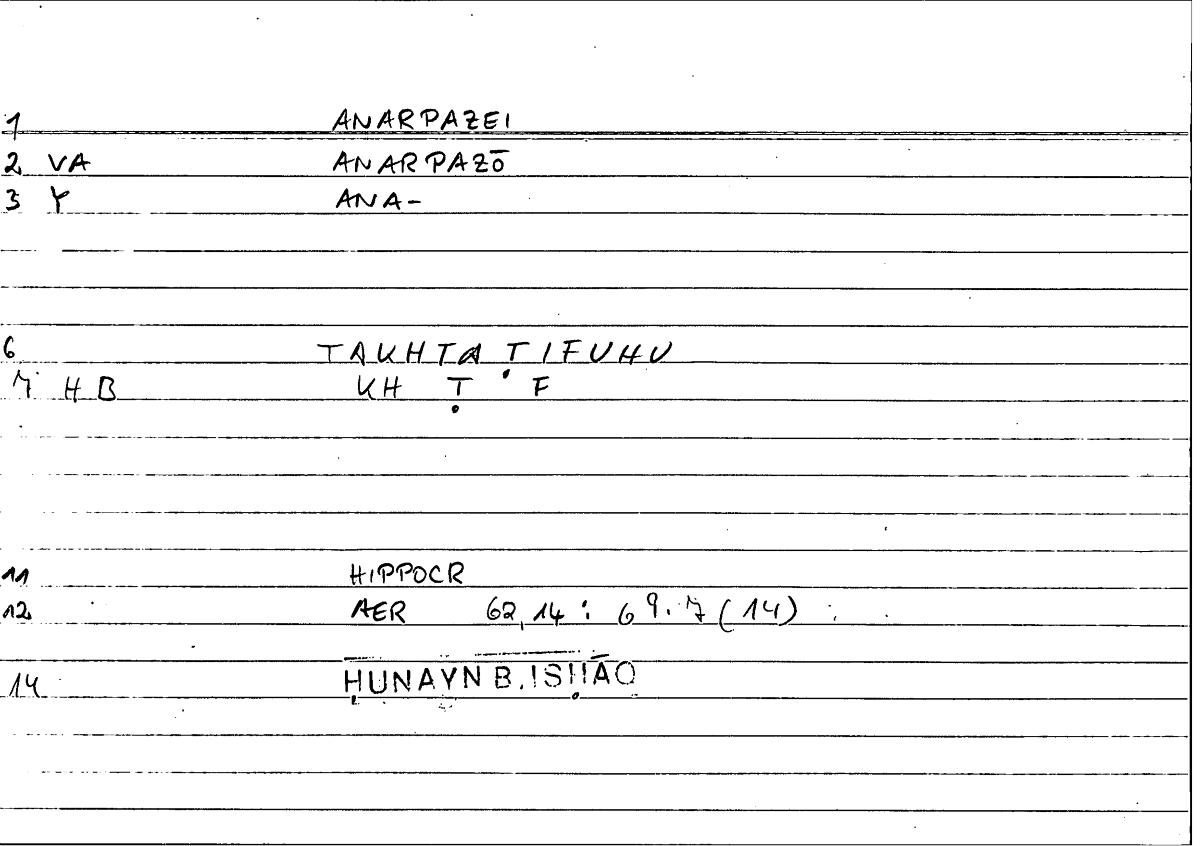 1 ANARPAZEI
2 VA ANARPAZŌ
3 Y ANA-
6 TAKHTAṬIFUHU
7 HB KH Ṭ F
11 HIPPOCR
12 AER 62,14 : 69.7 (14)
14 ḤUNAYN B. ISḤĀQ